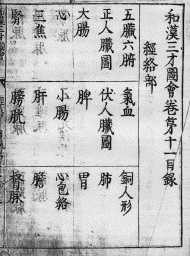 和漢三才圖會卷第十一目録
經絡部
五臟六腑 氣血 銅人形
正人臟圖 伏人臟圖 肺
大腸 脾 胃
心 小腸
三焦 肝 膽 心包絡
腎 膀胱